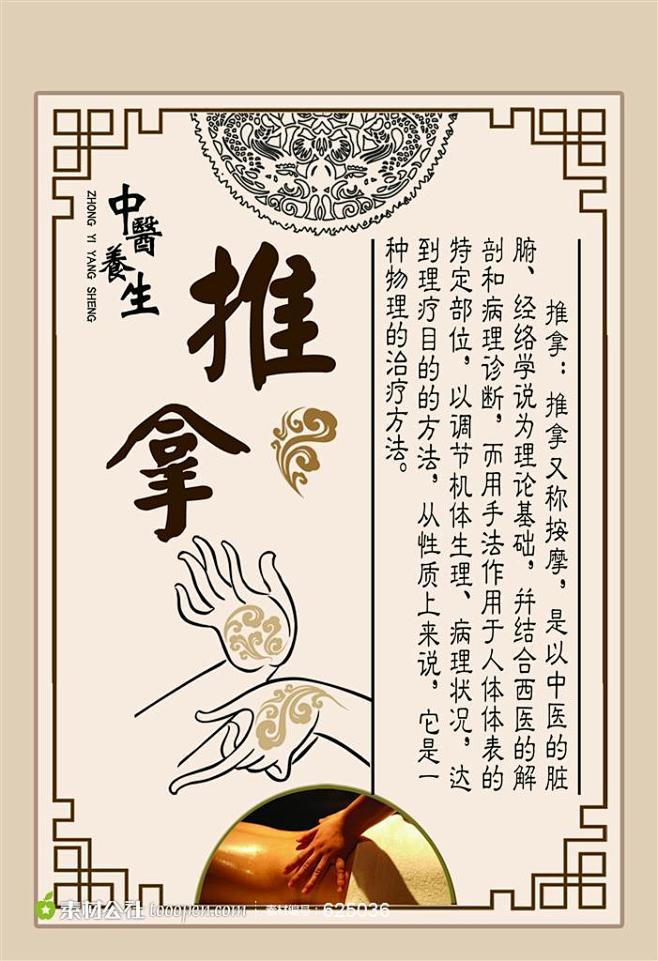 中醫養生
ZHONG YI YANG SHENG
推拿
推拿：推拿又称按摩，是以中医的脏
腑、经络学说为理论基础，并结合西医的解
剖和病理诊断，而用手法作用于人体体表的
特定部位，以调节机体生理、病理状况，达
到理疗目的的方法，从性质上来说，它是一
种物理的治疗方法。
素材公社 tooopen.com 素材编号：625036